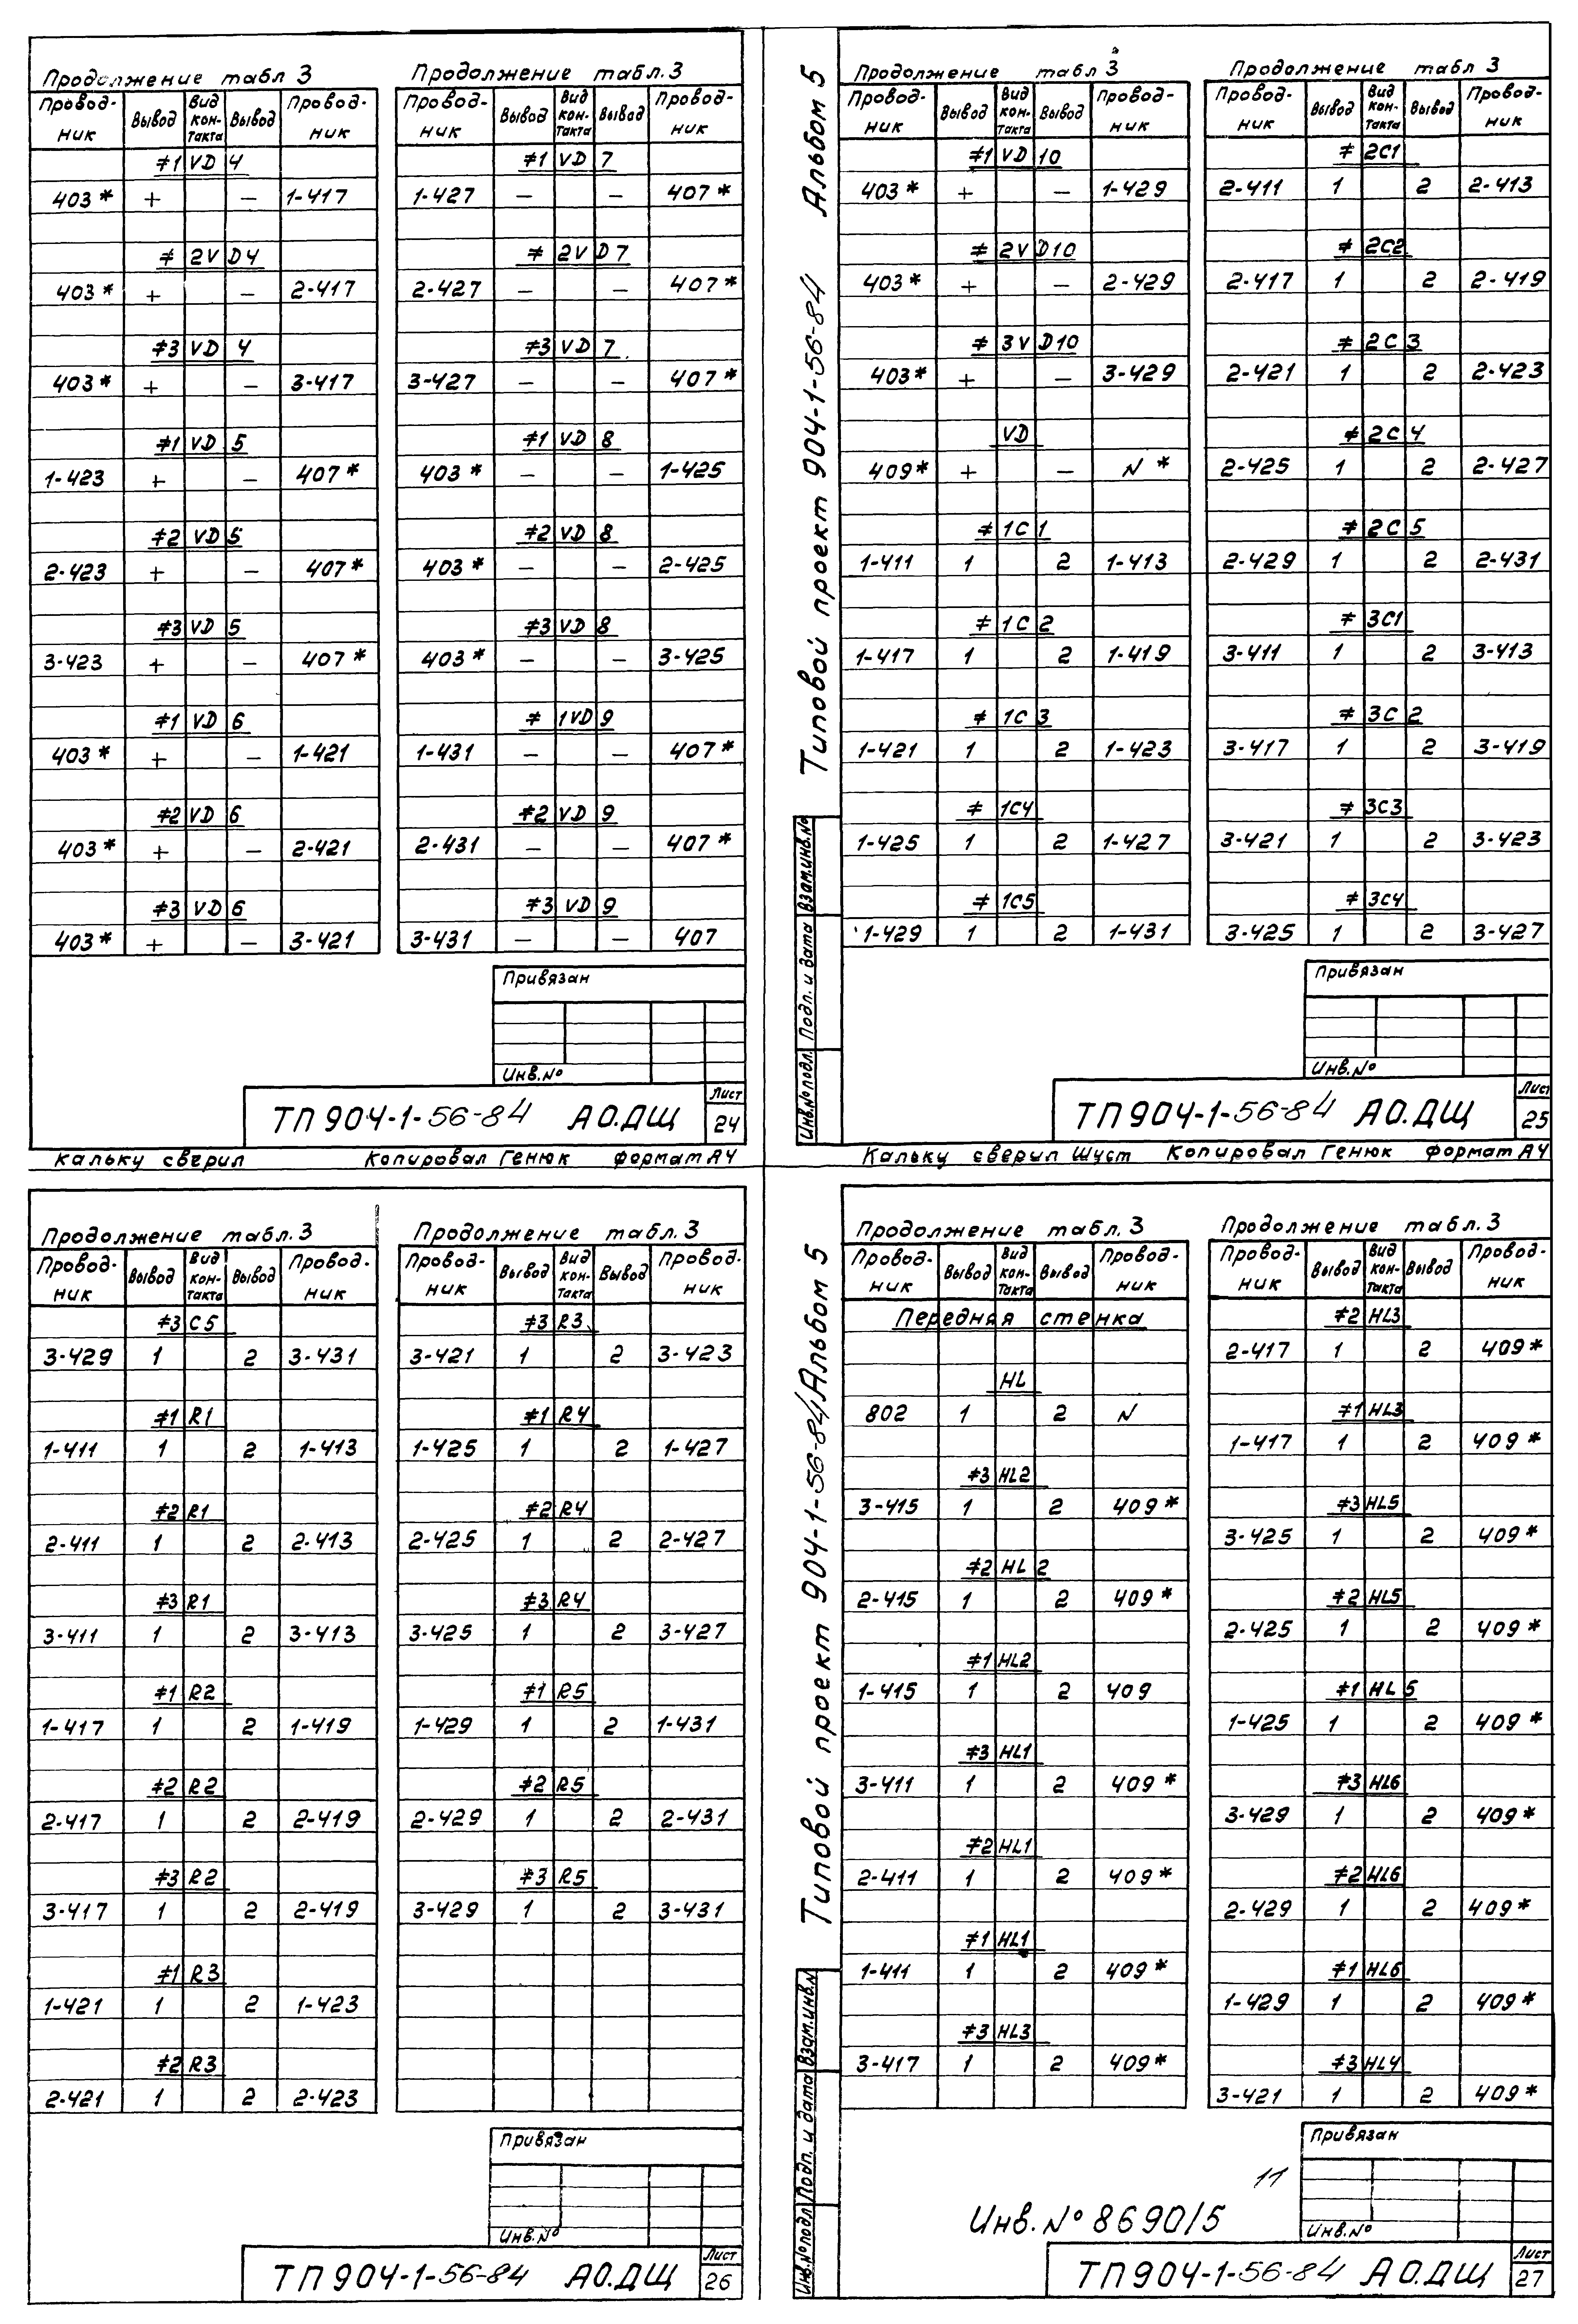 Продолжение табл 3
Провод-ник Вывод Вид кон-такта Вывод Провод-ник
≠1 VD 4
403* + – 1-417
≠ 2VD4
403* + – 2-417
≠3 VD 4
403* + – 3-417
≠1 VD 5
1-423 + – 407*
≠2 VD 5
2-423 + – 407*
≠3 VD 5
3-423 + – 407*
≠1 VD 6
403* + – 1-421
≠2 VD 6
403* + – 2-421
≠3 VD 6
403* + – 3-421
Продолжение табл.3
Провод-ник Вывод Вид кон-такта Вывод Провод-ник
≠1 VD 7
1-427 – – 407*
≠ 2VD7
2-427 – – 407*
≠3 VD 7
3-427 – – 407*
≠1 VD 8
403* – – 1-425
≠2 VD 8
403* – – 2-425
≠3 VD 8
403* – – 3-425
≠ 1VD 9
1-431 – – 407*
≠2 VD 9
2-431 – – 407*
≠3 VD 9
3-431 – – 407
Привязан
Инв.№
ТП904-1-56-84 АО.ДЩ
Лист
24
Кальку сверил Копировал Генюк формат А4
Типовой проект 904-1-56-84 Альбом 5
Продолжение табл 3
Провод-ник Вывод Вид кон-такта Вывод Провод-ник
≠1 VD 10
403* + – 1-429
≠ 2VD10
403* + – 2-429
≠ 3VD10
403* + – 3-429
VD
409* + – N*
≠ 1C1
1-411 1 2 1-413
≠ 1C2
1-417 1 2 1-419
≠ 1C3
1-421 1 2 1-423
≠ 1C4
1-425 1 2 1-427
≠ 1C5
1-429 1 2 1-431
Продолжение табл 3
Провод-ник Вывод Вид кон-такта Вывод Провод-ник
≠ 2C1
2-411 1 2 2-413
≠ 2C2
2-417 1 2 2-419
≠ 2C3
2-421 1 2 2-423
≠ 2C4
2-425 1 2 2-427
≠ 2C5
2-429 1 2 2-431
≠ 3C1
3-411 1 2 3-413
≠ 3C2
3-417 1 2 3-419
≠ 3C3
3-421 1 2 3-423
≠ 3C4
3-425 1 2 3-427
Инв.№подл. Подп. и дата Взам.инв.№
Привязан
Инв.№
ТП904-1-56-84 АО.ДЩ
Лист
25
Кальку сверил Шуст Копировал Генюк формат А4
Продолжение табл.3
Провод-ник Вывод Вид кон-такта Вывод Провод-ник
≠3 C5
3-429 1 2 3-431
≠1 R1
1-411 1 2 1-413
≠2 R1
2-411 1 2 2-413
≠3 R1
3-411 1 2 3-413
≠1 R2
1-417 1 2 1-419
≠2 R2
2-417 1 2 2-419
≠3 R2
3-417 1 2 2-419
≠1 R3
1-421 1 2 1-423
≠2 R3
2-421 1 2 2-423
Продолжение табл.3
Провод-ник Вывод Вид кон-такта Вывод Провод-ник
≠3 R3
3-421 1 2 3-423
≠1 R4
1-425 1 2 1-427
≠2 R4
2-425 1 2 2-427
≠3 R4
3-425 1 2 3-427
≠1 R5
1-429 1 2 1-431
≠2 R5
2-429 1 2 2-431
≠3 R5
3-429 1 2 3-431
Привязан
Инв.№
ТП904-1-56-84 АО.ДЩ
Лист
26
Типовой проект 904-1-56-84/Альбом 5
Продолжение табл.3
Провод-ник Вывод Вид кон-такта Вывод Провод-ник
Передняя стенка
HL
802 1 2 N
≠3 HL2
3-415 1 2 409*
≠2 HL2
2-415 1 2 409*
≠1 HL2
1-415 1 2 409
≠3 HL1
3-411 1 2 409*
≠2 HL1
2-411 1 2 409*
≠1 HL1
1-411 1 2 409*
≠3 HL3
3-417 1 2 409*
Продолжение табл.3
Провод-ник Вывод Вид кон-такта Вывод Провод-ник
≠2 HL3
2-417 1 2 409*
≠1 HL3
1-417 1 2 409*
≠3 HL5
3-425 1 2 409*
≠2 HL5
2-425 1 2 409*
≠1 HL5
1-425 1 2 409*
≠3 HL6
3-429 1 2 409*
≠2 HL6
2-429 1 2 409*
≠1 HL6
1-429 1 2 409*
≠3 HL4
3-421 1 2 409*
Инв.№подл Подп. и дата Взам.инв.N
Привязан
Инв.№
11
Инв.№ 8690/5
ТП904-1-56-84 АО.ДЩ
Лист
27